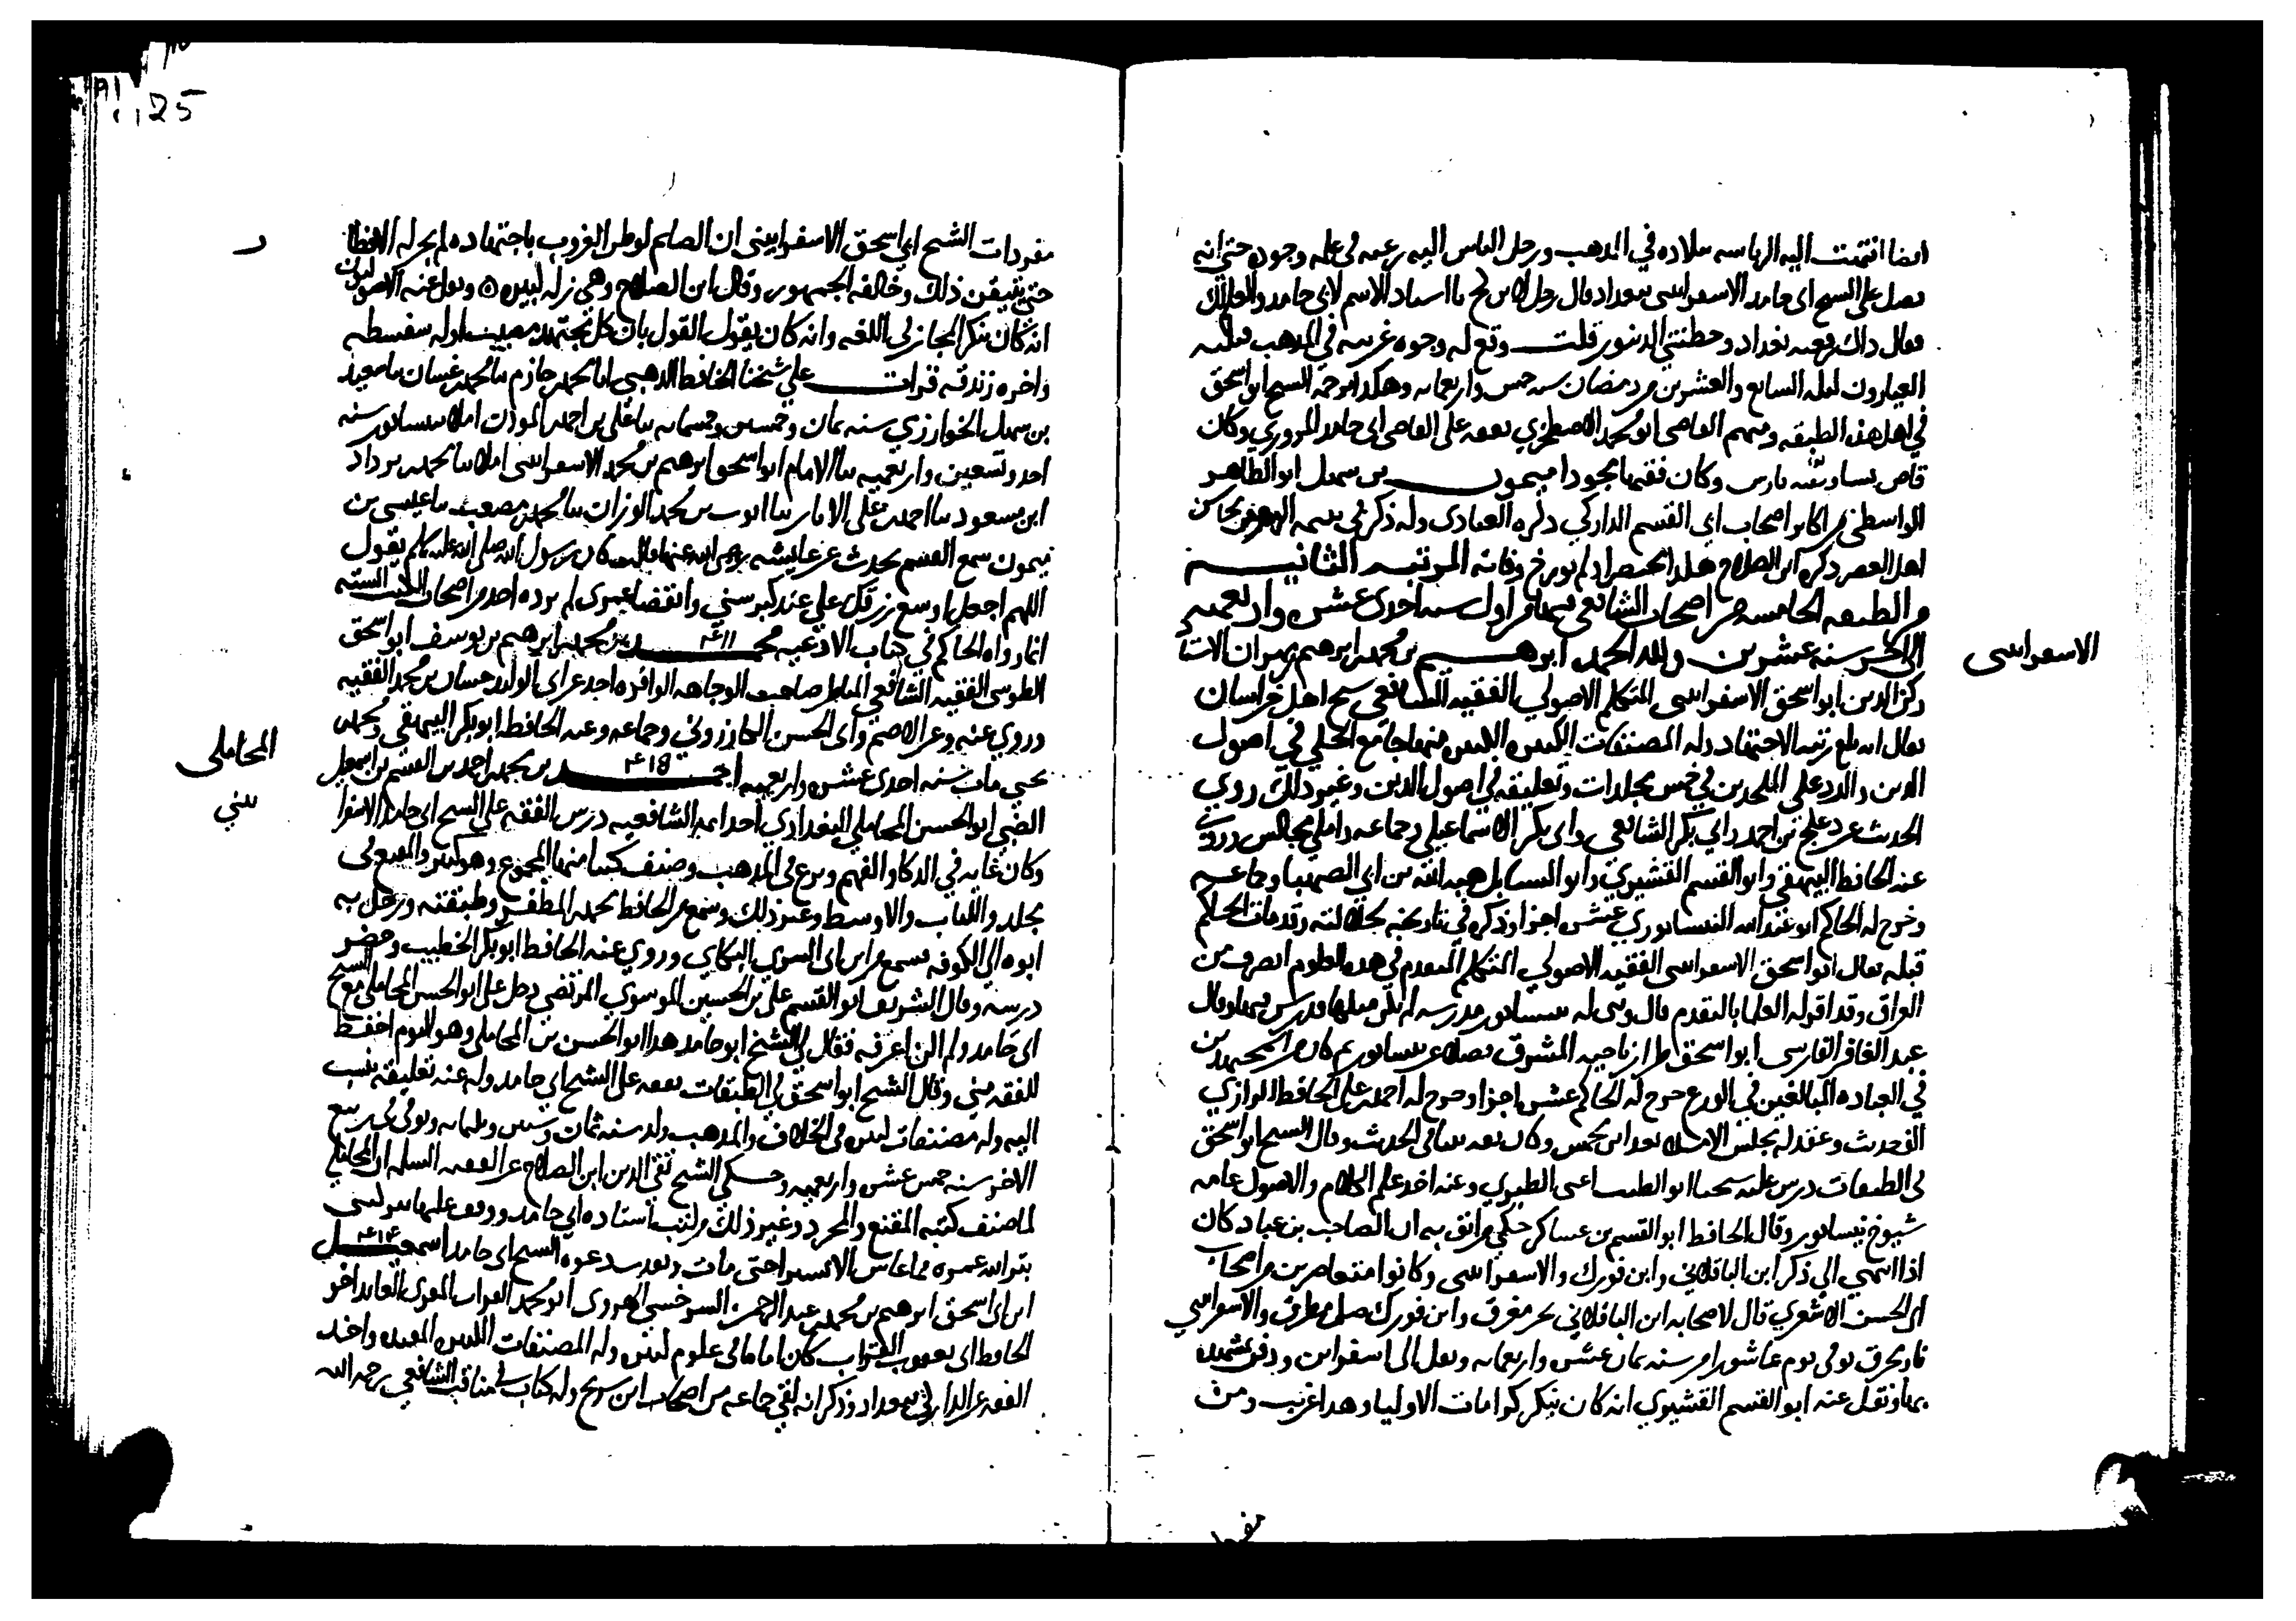 ايضا انتهت اليه الرياسه ببلاده في المذهب ورحل الناس اليه رغبه في علمه وجوده حتى انه
فصل على الشيخ ابي حامد الاسفرايني ببغداد فقال رجل يا استاد الاسم لابي حامد والعلم لك
فقال ذاك رفعته بغداد وحطتني الدينور قلت وقع له وجوه غريبه في المذهب قتله
العيارون ليله السابع والعشرين من رمضان سنه خمس واربعمايه وهكذا ترجمه الشيخ ابو اسحق
في اهل هذه الطبقه ومنهم القاضي ابو محمد الاصطخري تفقه على القاضي ابي حامد المروروذي وكان
قاضي فسا فارس وكان فقيها مجودا ميمون بن سهل ابو الطاهر
الواسطي من اكابر اصحاب ابي القسم الداركي ذكره العبادي وله ذكر في
اهل العصر ذكره ابن الصلاح هكذا مختصرا ولم يورخ وفاته المرتبه الثانيه
من الطبقه الخامسه من اصحاب الشافعي من اول سنه احدى عشره واربعميه
الى اخر سنه عشرين ولله الحمد ابرهيم بن محمد بن ابرهيم بن مهران الاستاد
ركن الدين ابو اسحق الاسفرايني المتكلم الاصولي الفقيه الشافعي شيخ اهل خراسان
يقال انه بلغ رتبه الاجتهاد وله المصنفات الكثيره منها جامع الحلي في اصول
الدين والرد على الملحدين في خمس مجلدات وتعليقه في اصول الدين وغير ذلك روي
الحديث عن دعلج بن احمد وابي بكر الشافعي وابي بكر الاسماعيلي وجماعه واملى مجالس وروى
عنه الحافظ البيهقي وابو القسم القشيري وابو السنابل هبه الله بن ابي الصهبا وجماعه
وخرج له الحاكم ابو عبد الله النيسابوري عشره اجزا وذكره في تاريخه لجلالته وقد مات الحاكم
قبله فقال ابو اسحق الاسفرايني الفقيه الاصولي المتكلم المتقدم في هذه العلوم انصرف من
العراق وقد اقر له العلما بالتقدم قال وبني له بنيسابور مدرسه لم يبن مثلها فدرس بها وقال
عبد الغافر الفارسي ابو اسحق طراز ناحيه المشرق فضلا عن نيسابور ثم كان من المجتهدين
في العباده المبالغين في الورع خرج له الحاكم عشره اجزا وخرج له احمد بن علي الحافظ الرازي
الف حديث وعقد له مجلس الاملا بعد ابن محمش وكان ثقه ثبتا في الحديث وقال الشيخ ابو اسحق
في الطبقات درس عليه شيخنا ابو الطيب اعني الطبري وعنه اخذ علم الكلام والاصول عامه
شيوخ نيسابور وقال الحافظ ابو القسم بن عساكر حكي من اثق به ان الصاحب بن عباد كان
اذا انتهى الي ذكر ابن الباقلاني وابن فورك والاسفرايني وكانوا متعاصرين من اصحاب
ابي الحسن الاشعري قال لاصحابه ابن الباقلاني بحر مغرق وابن فورك صل مطرق والاسفرايني
نار تحرق توفي يوم عاشورا من سنه ثمان عشره واربعمايه ونقل الى اسفراين ودفن بمشهده
بها ونقل عنه ابو القسم القشيري انه كان ينكر كرامات الاوليا وهذا غريب ومن
الاسفرايني
مفردات الشيخ ابي اسحق الاسفرايني ان الصايم لو ظن الغروب باجتهاده لم يجز له الافطار
حتى يتيقن ذلك وخالفه الجمهور وقال ابن الصلاح وهي زله كبيره ونقل عنه الاصوليون
انه كان ينكر المجاز في اللغه وانه كان يقول القول بان كل مجتهد مصيب اوله سفسطه
واخره زندقه قرات علي شيخنا الحافظ الذهبي انا محمد بن حازم نا محمد بن غسان نا سعيد
بن سهل الخوارزمي سنه ثمان وخمسين وخمسمايه نا علي بن احمد المؤذن املا بنيسابور سنه
احد وتسعين واربعميه نا الامام ابو اسحق ابرهيم بن محمد الاسفرايني املا نا محمد بن يزداد
ابن مسعود نا احمد بن علي الابار نا ايوب بن محمد الوزان نا محمد بن مصعب نا عيسى بن
ميمون سمع القسم يحدث عن عايشه رضي الله عنها قالت كان رسول الله صلى الله عليه وسلم يقول
اللهم اجعل اوسع رزقك علي عند كبر سني وانقضا عمري لم يروه احد من اصحاب الكتب السته
انما رواه الحاكم في كتاب الادعيه محمد بن محمد بن ابرهيم بن يوسف ابو اسحق ٤١١
الطوسي الفقيه الشافعي المناظر صاحب الوجاهه الوافره اخذ عن ابي الوليد حسان بن محمد الفقيه
وروي عنه وعن الاصم وابي الحسن الكارزوني وجماعه وعنه الحافظ ابو بكر البيهقي ومحمد بن
يحيى مات سنه احدى عشره واربعميه احمد بن محمد بن احمد بن القسم بن اسمعيل ٤١٥
الضبي ابو الحسن المحاملي البغدادي احد ايمه الشافعيه درس الفقه على الشيخ ابي حامد الاسفرايني
وكان غايه في الذكا والفهم وبرع في المذهب وصنف كتبا منها المجموع وهو كبير والمقنع في
مجلد واللباب والاوسط وغير ذلك وسمع من الحافظ محمد بن المظفر وطبقته ورحل به
ابوه الي الكوفه فسمع من ابن ابي السري البكاي وروي عنه الحافظ ابو بكر الخطيب وحضر
درسه وقال الشريف ابو القسم علي بن الحسين الموسوي المرتضى دخل علي ابو الحسن المحاملي مع الشيخ
ابي حامد ولم اكن اعرفه فقال لي الشيخ ابو حامد هذا ابو الحسن بن المحاملي وهو اليوم احفظ
للفقه مني وقال الشيخ ابو اسحق في الطبقات تفقه على الشيخ ابي حامد وله عنه تعليقه ينسب
اليه وله مصنفات كثيره في الخلاف والمذهب ولد سنه ثمان وستين وثلثمايه وتوفي في ربيع
الاخر سنه خمس عشره واربعميه وحكي الشيخ تقي الدين ابن الصلاح عن الفقيه ان المحاملي
لما صنف كتبه المقنع والمجرد وغير ذلك من كتب استاده ابي حامد ووقف عليها قال
بتر الله عمره فما عاش الا يسيرا حتى مات ونفذت دعوه الشيخ ابي حامد اسمعيل ٤١٤
ابن ابي اسحق ابرهيم بن محمد بن عبد الرحمن السرخسي الهروي ابو محمد القراب المقري العابد اخو
الحافظ ابي يعقوب القراب كان اماما في علوم كثيره وله المصنفات الكثيره المفيده واخذ
الفقه عن الداركي ببغداد وذكر انه لقي جماعه من اصحاب ابن سريج وله كتاب في مناقب الشافعي رحمه الله
المحاملي
25